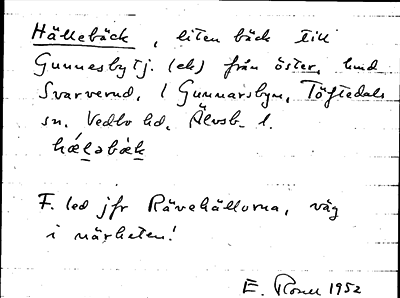 Hällebäck, liten bäck till
Gunnesbytj. (ek) från öster, hmd
Svarverud, l Gunnarsbyn, Töftedals
sn. Vedbo hd, Älvsb. l.
hæ̀ləbæ̀k
F. led jfr Rävehällorna, väg
i närheten!
E. Rosell 1952